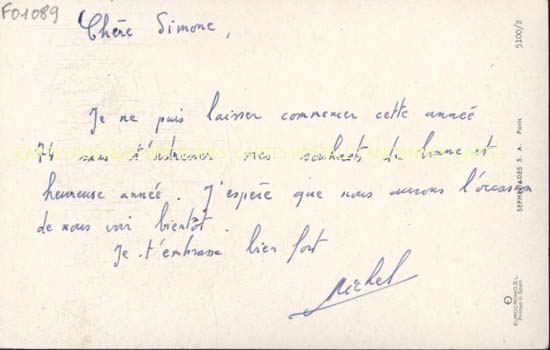 F01089
Chère Simone,
Je ne puis laisser commencer cette année
74 sans t'adresser mes souhaits de bonne et
heureuse année. J'espère que nous aurons l'occasion
de nous voir bientôt.
Je t'embrasse bien fort
Michel
5100/2
SEPHERIADES S. A. Paris
EUROCROMO,S.L.
Printed in Spain